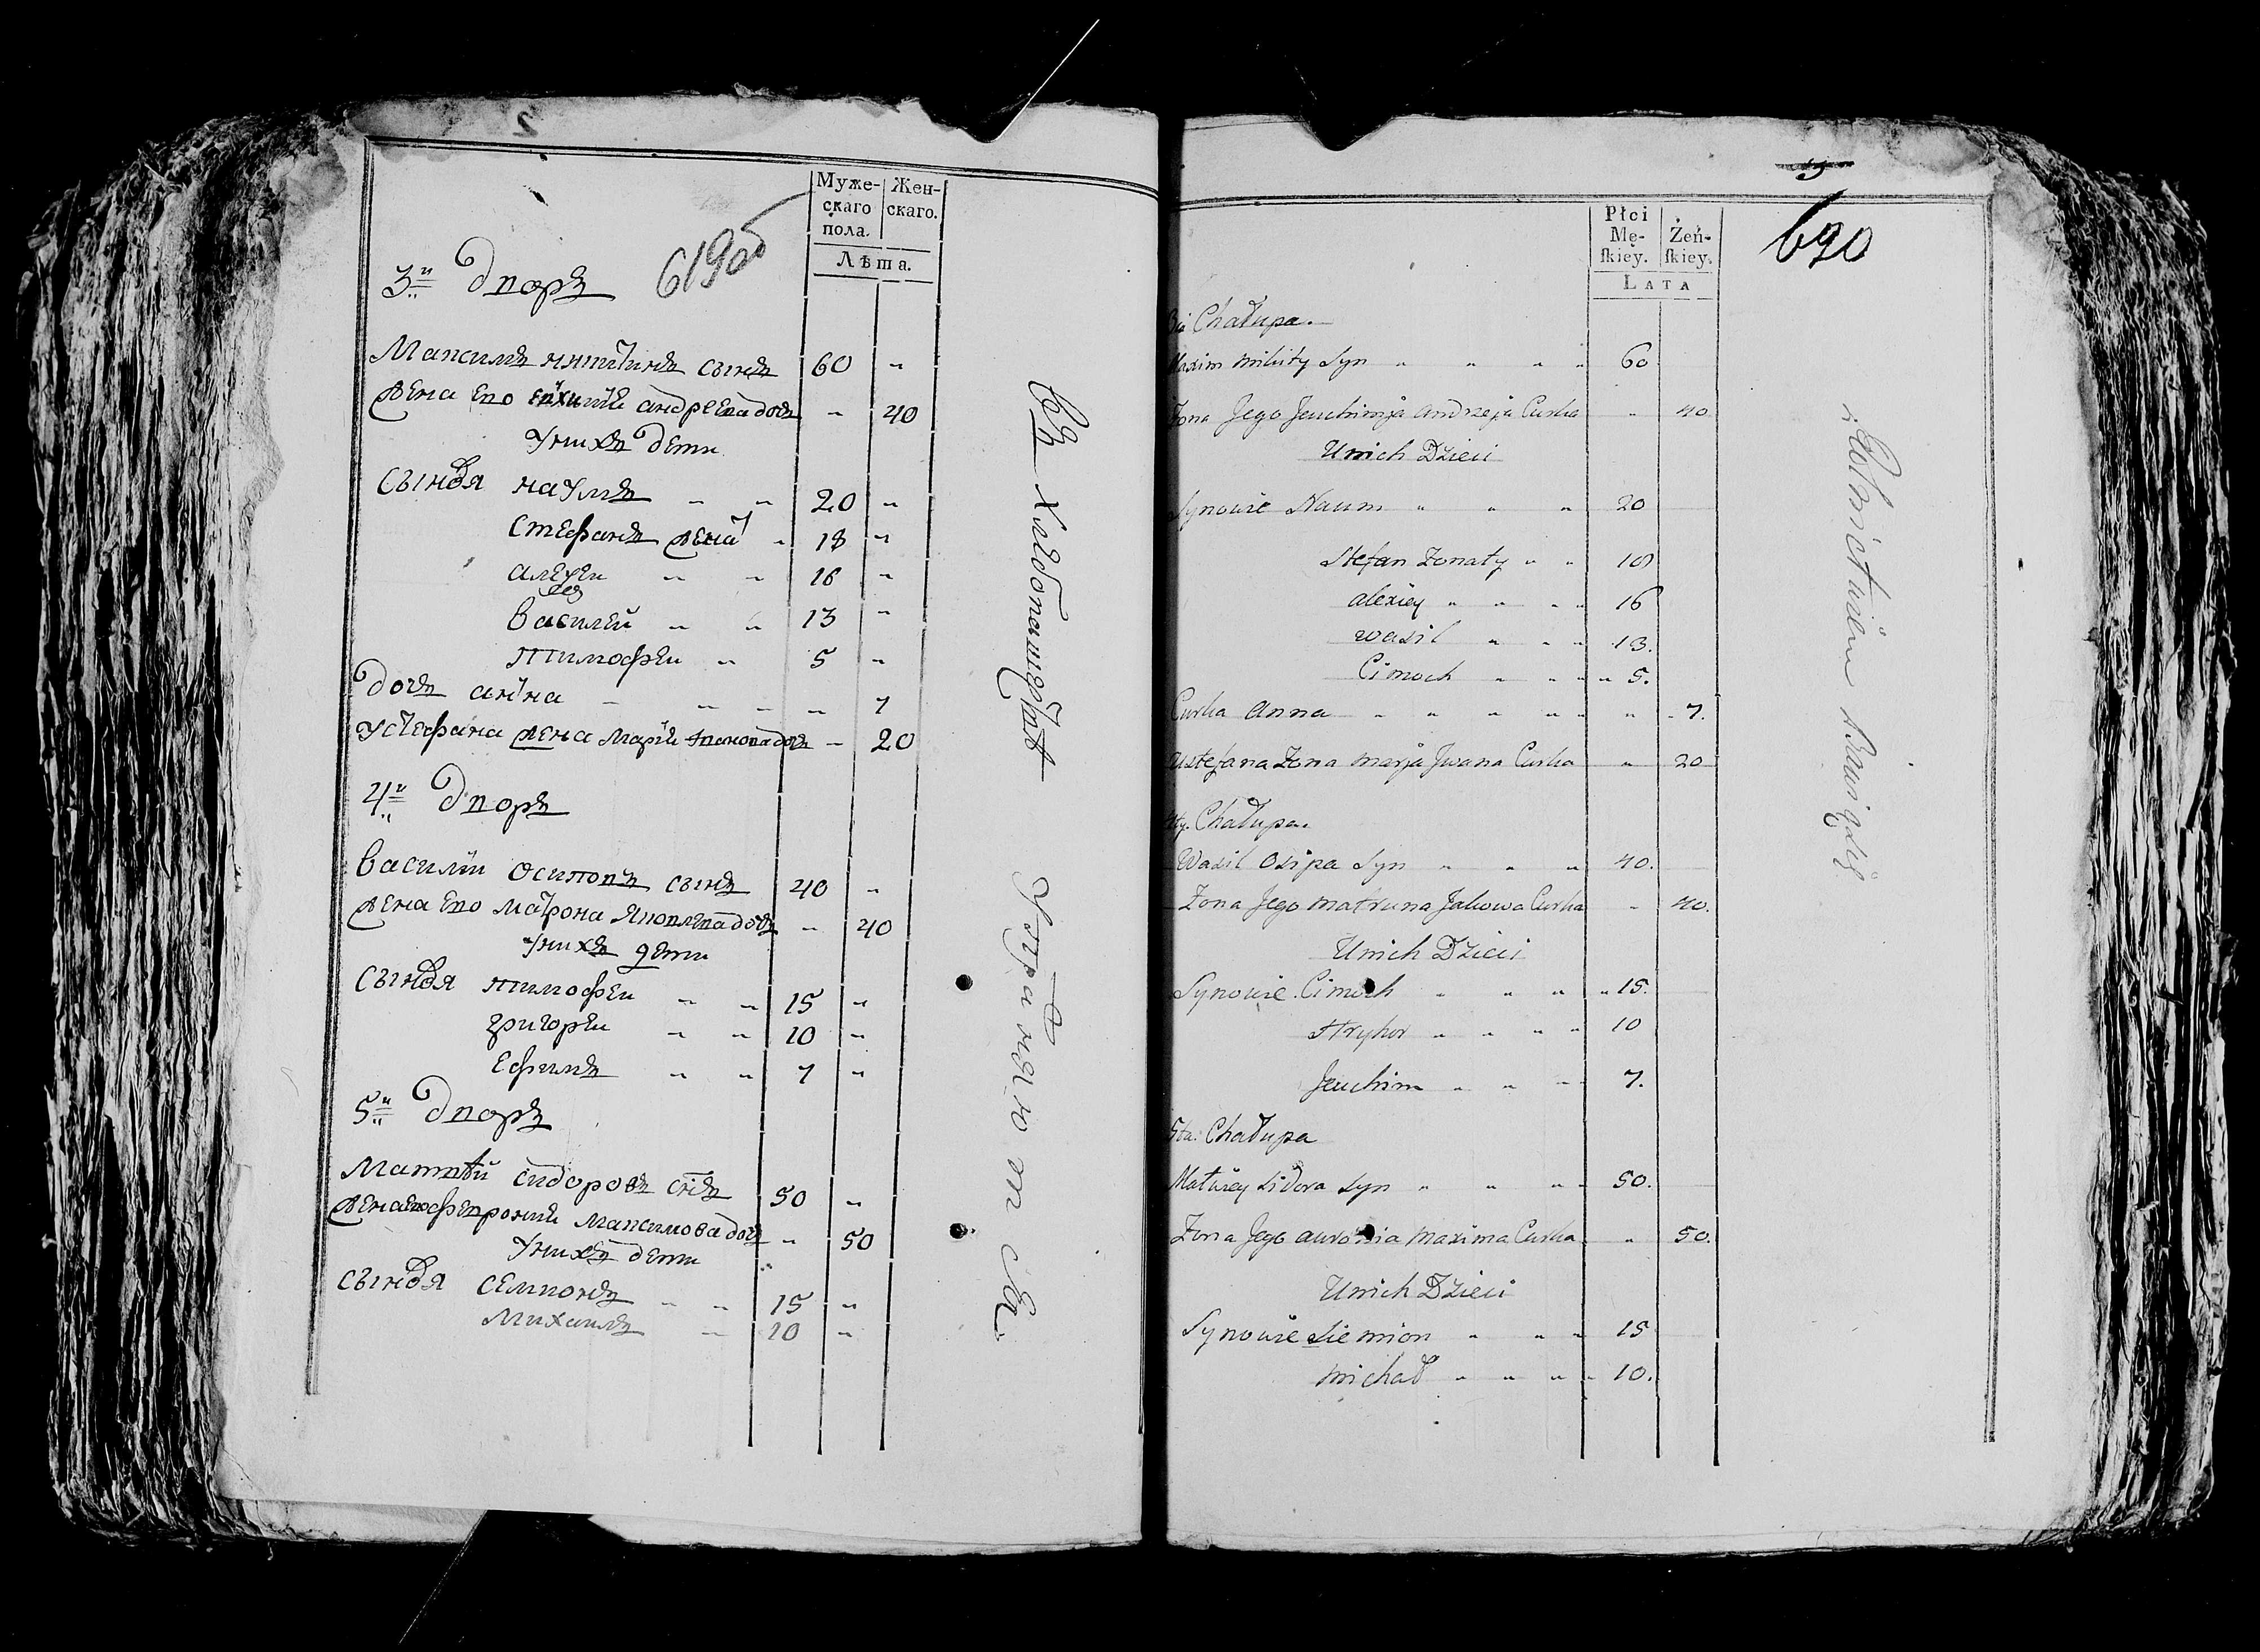 2
Муже-
скаго
пола.
Жен-
скаго.
Лѣта.
619об
3й Дворъ
Максимъ никитинъ сынъ 60 "
жена Ево евхимѣя андреева дочь " 40
Унихъ дети
Сыновя наумъ " " 20 "
стефанъ женатъ " 18 "
алеѯеи " " 16 "
василей " " 13 "
тимофеи " 5 "
дочь анна " " " " 7
Устефана жена марія иванова дочь " 20
4й Дворъ
Василіи осиповъ сынъ 40 "
жена Ево матрона яковлева дочь " 40
унихъ дети
Сыновя тимофеи " " 15 "
григореи " " 10 "
Ефимъ " " 7 "
5й Дворъ
Матвѣй сидоровъ снъ 50 "
жена Ево февронія максимова дочь " 50
Унихъ дети "
сыновя семионъ " " 15 "
михаилъ " 10 "
въ хлебопашестве
Упражняются
5
690
Płci
Mę-
skiey.
Żeń-
skiey.
LATA
3cia Chałupa.
Maxim Mikity Syn " " " " 60
Żona Jego Jeuchimja Andrzeja Curka " 40
Unich Dzieci
Synowie Naum " " " 20
Stefan Żonaty " " 18
alexiey " " " " 16
Wasil " " " 13.
Cimoch " " " " 5.
Curka Anna " " " " " " 7.
Ustefana Żona Marja Jwana Curka " 20
4ty. Chałupa.
Wasil Osipa Syn " " " 40.
Żona Jego Matruna Jakowa Curka " 40.
Unich Dzieci
Synowie Cimoch " " " " 15.
Hryhor " " " " 10
Jeuchim " " " 7.
5ta. Chałupa
Matwiey Sidora Syn " " " " 50.
Żona Jego Maxima Curka " 50.
Unich Dzieci
Synowie Siemion " " " 15
Michał " " " " 10.